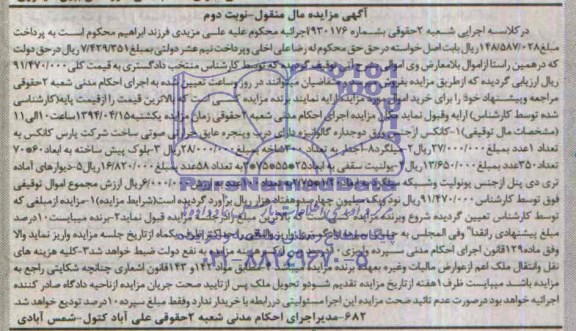 آگهی مزایده مال منقول-نوبت دوم
درکلاسه اجرایی شعبه ۲حقوقی بشماره ۹۳۰۱۷۶اجرائیه محکوم علیه علی مزیدی فرزند ابراهیم محکوم است به پرداخت
مبلغ۱۴۸/۵۸۷/۰۲۸ریال بابت اصل خواسته درحق محکوم له رضا علی اخلی وپرداخت نیم عشر دولتی بمبلغ۷/۴۲۹/۳۵۱ریال درحق دولت
که درهمین راستا ازاموال بلامعارض وی اموالی بشرح آتی توقیف گردیده که توسط کارشناس منتخب دادگستری به قیمت کلی ۹۱/۴۷۰/۰۰۰
ریال ارزیابی گردیده که ازطریق مزایده بفروش میرسد متقاضیان میتوانند در روز وساعت تعیین شده به اجرای احکام مدنی شعبه ۲حقوقی
مراجعه وپیشنهاد خود را برای خرید اموال مورد مزایده ارایه نمایند برنده مزایده کسی است که بالاترین قیمت را ازقیمت پایه(کارشناسی
شده توسط کارشناس) ارایه وقبول نماید مکان مزایده اجرای احکام مدنی شعبه ۲حقوقی زمان مزایده یکشنبه ۱۳۹۴/۰۴/۱۵ساعت۱۰الی۱۱
(مشخصات مال توقیفی)۱-کانکس ازجنس ورق دوجداره گالوانیزه دارای درب وپنجره عایق حرارتی صوتی ساخت شرکت پارس کانکس به
تعداد ۱عدد بمبلغ ۲۷/۰۰۰/۰۰۰ریال۲-میلگرد۸-آجدار به تعداد ۳۰۰شاخه بمبلغ۲۸/۰۰۰/۰۰۰ریال ۳-بلوک پیش ساخته به ابعاد ۶۰*۷۰
تعداد۳۵۰عدد بمبلغ ۱۳/۶۵۰/۰۰۰ریال۴-یونلیت سقفی به ابعاد۲۵*۵۵*۷۵*۲به تعداد ۵۸عدد بمبلغ۱۶/۸۲۰/۰۰۰ریال۵-دیوارهای آماده
تری دی پنل ازجنس یونولیت وشبکه میلگرد به ابعاد ۱۴*۷۵*۲به تعداد ۱۰عدد به ارزش ۶/۰۰۰/۰۰۰ریال ارزش مجموع اموال توقیفی
فوق توسط کارشناس ۹۱/۴۷۰/۰۰۰ریال نودویک میلیون چهارصدوهفتاد هزار ریال برآورد گردیده است(شرایط مزایده)۱-مزایده ازمبلغی که
توسط کارشناس تعیین گردیده شروع وبرنده مزایده کسی است که بالاترین مبلغ را درجلسه مزایده قبول نماید۲-برنده میبایست ۱۰درصد
مبلغ پیشنهادی رانقدا" وفی المجلس به حساب سپرده دادگستری واریز والباقی را حداکثر ظرف یکماه ازتاریخ جلسه مزایده واریز نماید والا
وفق ماده ۱۲۹قانون اجرای احکام مدنی سپرده واریزی پس از کسر هزینه مزایده به نفع دولت ضبط خواهد شد۳-کلیه هزینه های
نقل وانتقال ملک اعم ازعوارض مالیات وغیره بعهده برنده مزایده میباشد مطابق مواد۱۴۲و ۱۴۳قانون اشعاری چنانچه شکایتی راجع به
مزایده باشد میبایست ظرف ۱هفته ازتاریخ مزایده تقدیم شودو تحویل ملک پس از تایید صحت جریان مزایده ازناحیه دادگاه صادر کننده
اجرائیه خواهد بود درصورت عدم تائید صحت مزایده این اجرا مسئولیتی دررابطه با خریدار ندارد وفقط مبلغ سپرده ۱۰درصد تودیع خواهد شد.
۶۸۲-مدیراجرای احکام مدنی شعبه ۲حقوقی علی آباد کتول-شمس آبادی